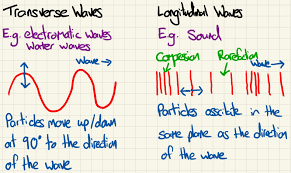 Transverse Waves
E.g. electromatic waves
water waves
Wave →
Particles move up/down
at 90° to the direction
of the wave
Longitudinal Waves
E.g. Sound
Compression
Rarefaction
Wave →
Particles oscillate in the
same plane as the direction
of the wave